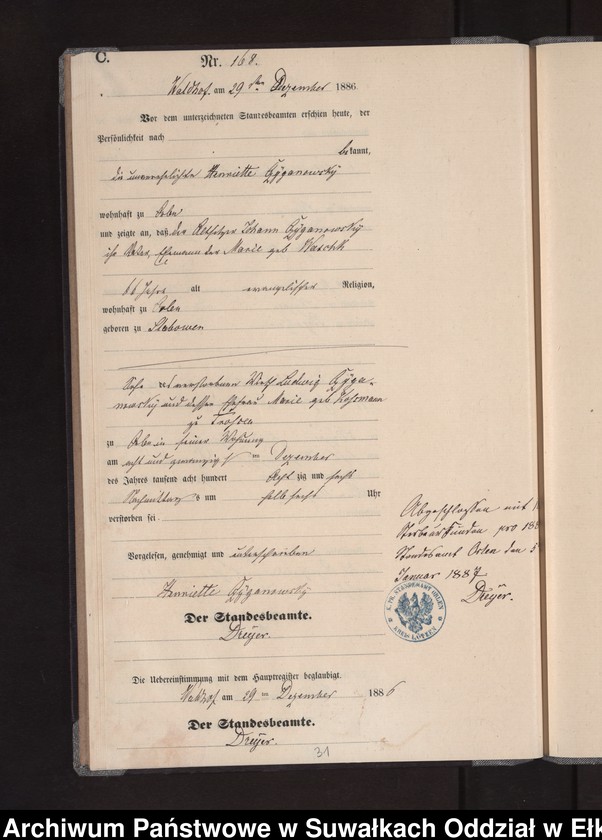 C.
Nr. 168.
Waldhof am 29 ten Dezember 1886
Vor dem unterzeichneten Standesbeamten erschien heute, der
Persönlichkeit nach
bekannt,
die unverehelichte Henriette Czyganowsky
wohnhaft zu Orlen
und zeigte an, daß der Altsitzer Johann Czyganowsky
ihr Vater, Ehemann der Marie geb Waschk
66 Jahre alt evangelischer Religion,
wohnhaft zu Orlen
geboren zu
Sohn des verstorbenen Wirth Ludwig Czyga-
nowsky und dessen Ehefrau Marie geb
zu
zu Orlen in seiner Wohnung
am acht und zwanzigsten Dezember
des Jahres tausend acht hundert Acht zig und sechs
Nachmittags um halb sechs Uhr
verstorben sei.
Vorgelesen, genehmigt und unterschrieben
Henriette Czyganowsky
Der Standesbeamte.
Dreyer.
Die Uebereinstimmung mit dem Hauptregister beglaubigt.
Waldhof am 29 ten Dezember 1886
Der Standesbeamte.
Dreyer.
31
Abgeschlossen mit
Sterbeurkunden pro 188
Standesamt Orlen den
Januar 1887
Dreyer.
K. PR. STANDESAMT ORLEN
KREIS LÖTZEN
Archiwum Państwowe w Suwałkach Oddział w Ełk